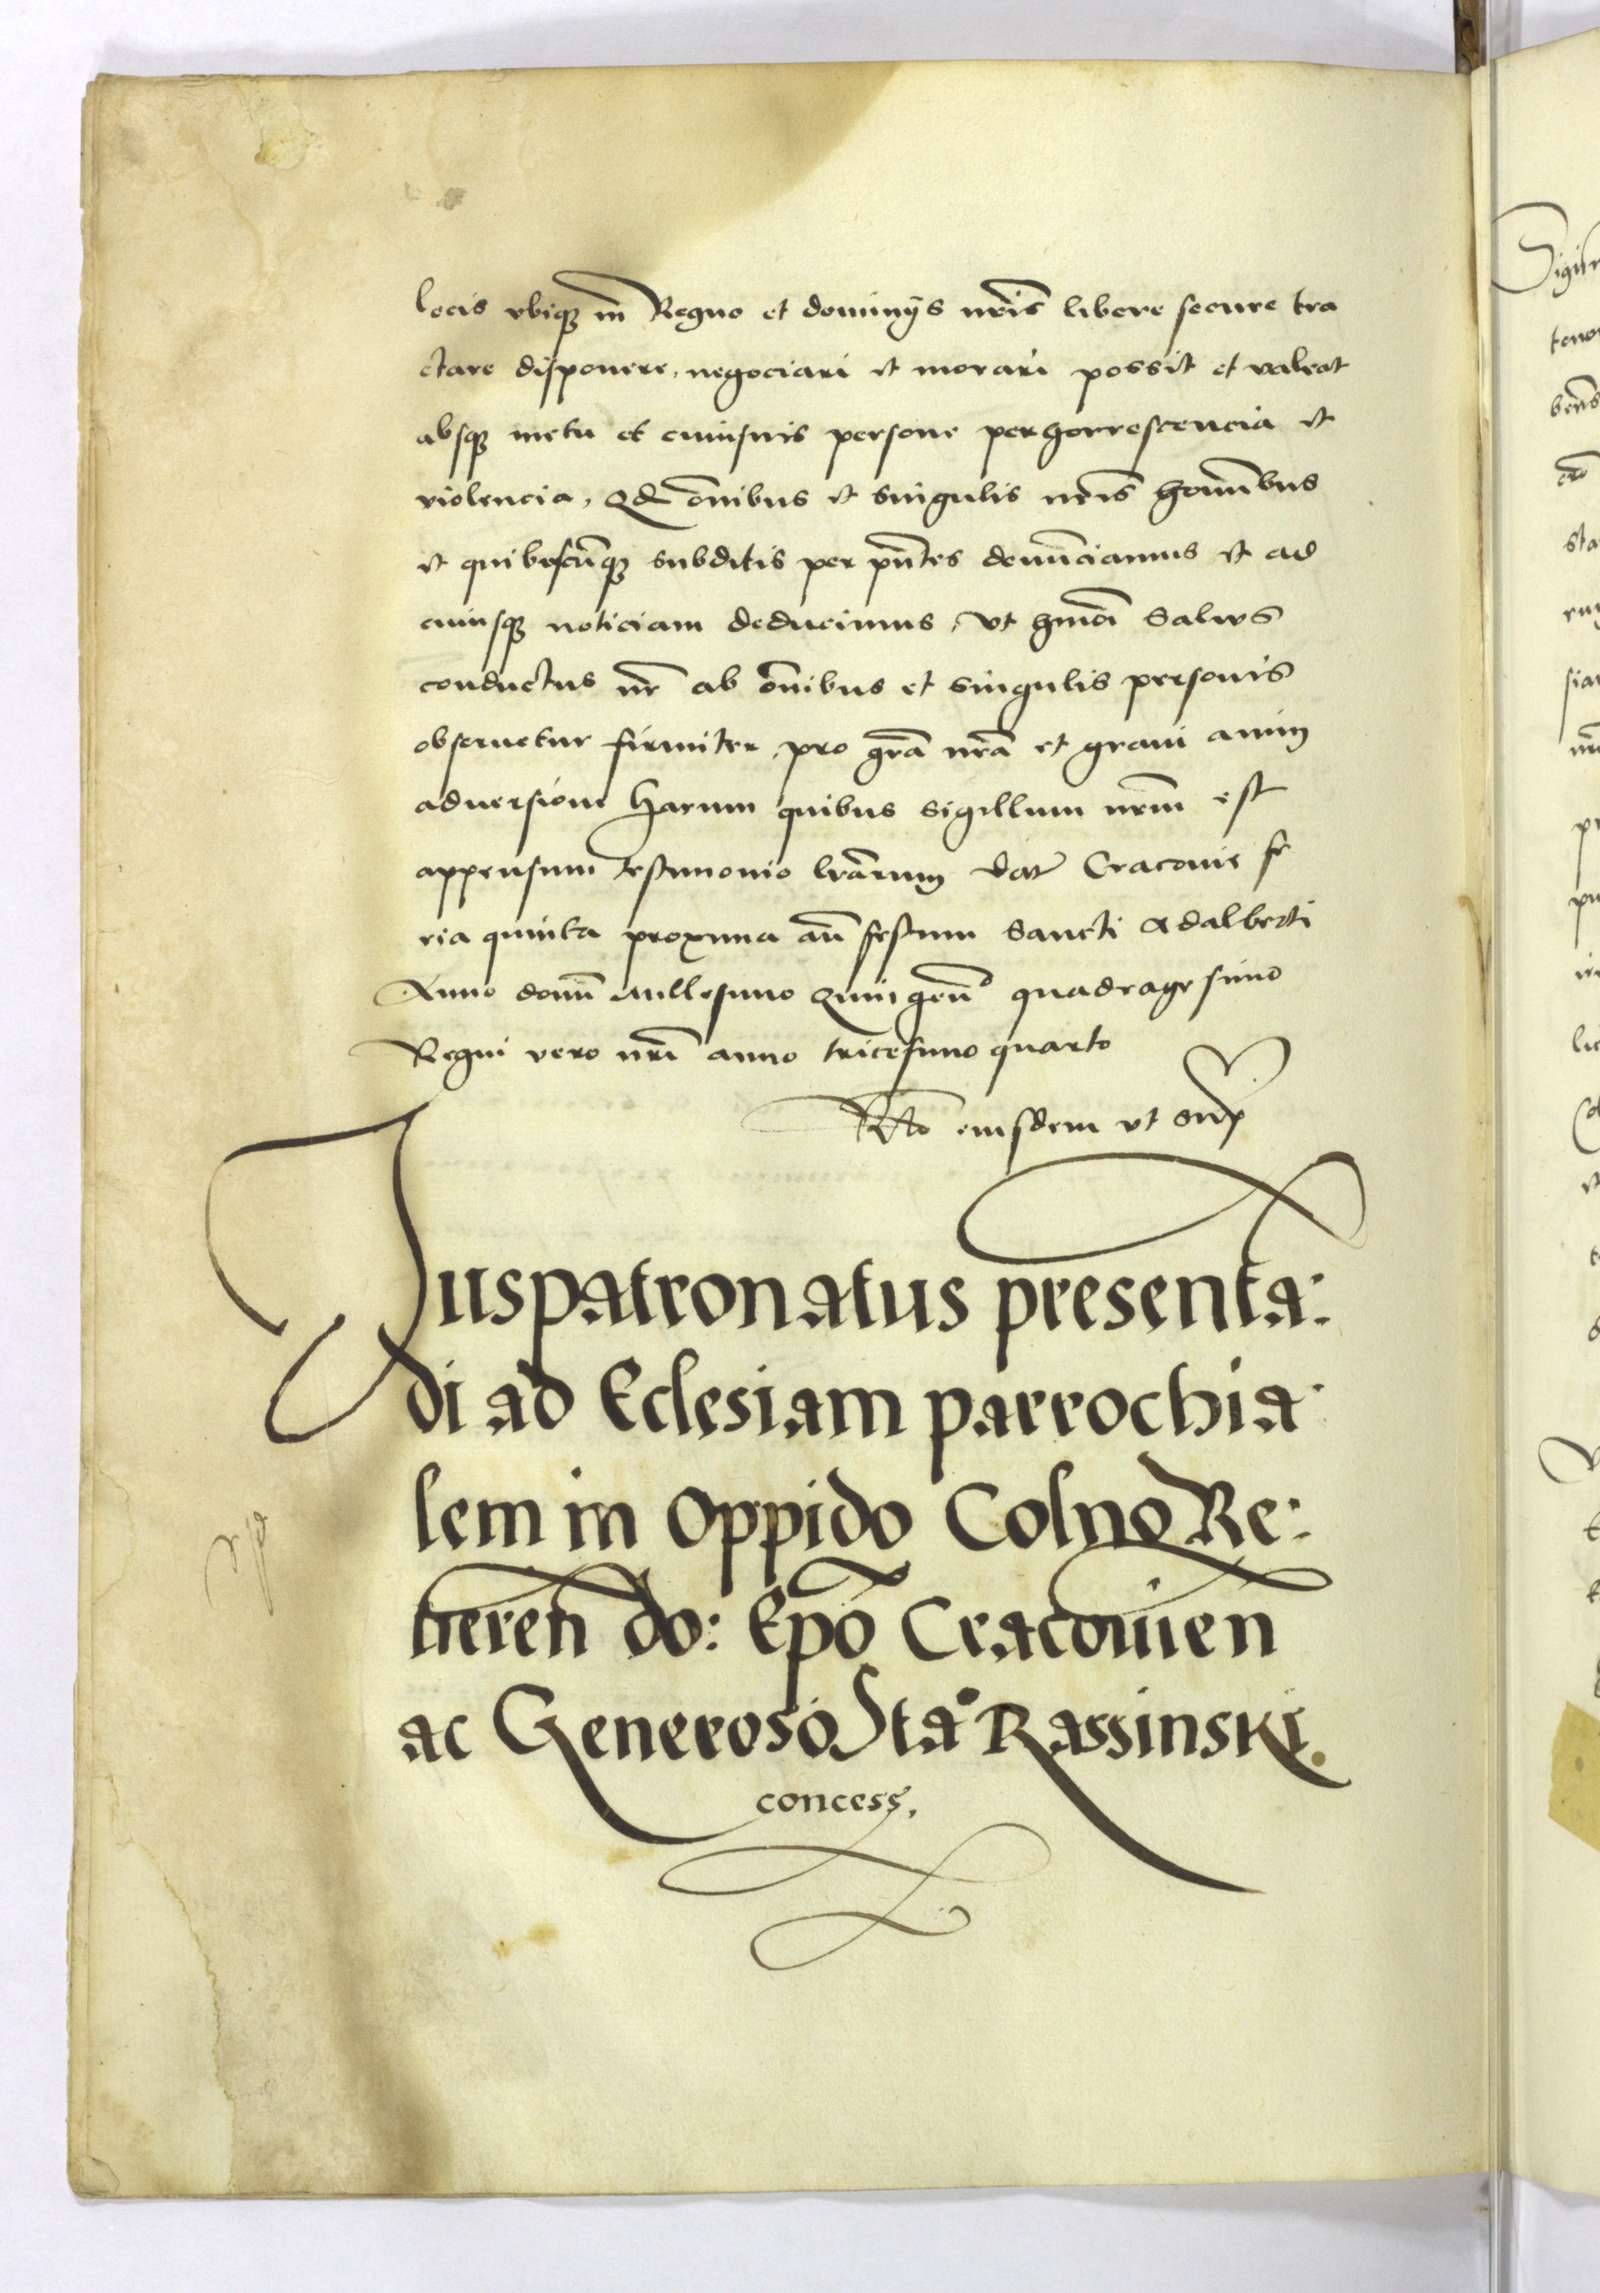 locis vbiq₃ in Regno et dominijs nr̃is libere secure tra
ctare disponere, negociari et morari possit et valeat
absq₃ metu et cuiusuis persone perhorrescencia et
violencia, Qd̃ om̃ibus et singulis nr̃is hominibus
et quibuscũq₃ subditis per pñtes denũciamus et ad
cuiusq₃ noticiam deducimus, vt hmõi Saluus
conductus nr̃ ab om̃ibus et singulis personis
obseruetur firmiter, pro gr̃a nr̃a et graui anim
aduersione Harum quibus sigillum nr̃m est
appensum testimonio lr̃arum Dat Cracouie fe
ria quinta proxima añ festum Sancti Adalberti
Anno domĩ Millesimo Quingeñᵒ quadragesimo
Regni vero nr̃i anno tricesimo quarto
Rᵗᵒ eiusdem vt sup
Juspatronatus presenta:
di ad Eclesiam parrochia
lem in Oppido Colno Re:
ueren̄ do: Epõ Cracouien
ac Generoso Staᵒ Rassinski.
concess.